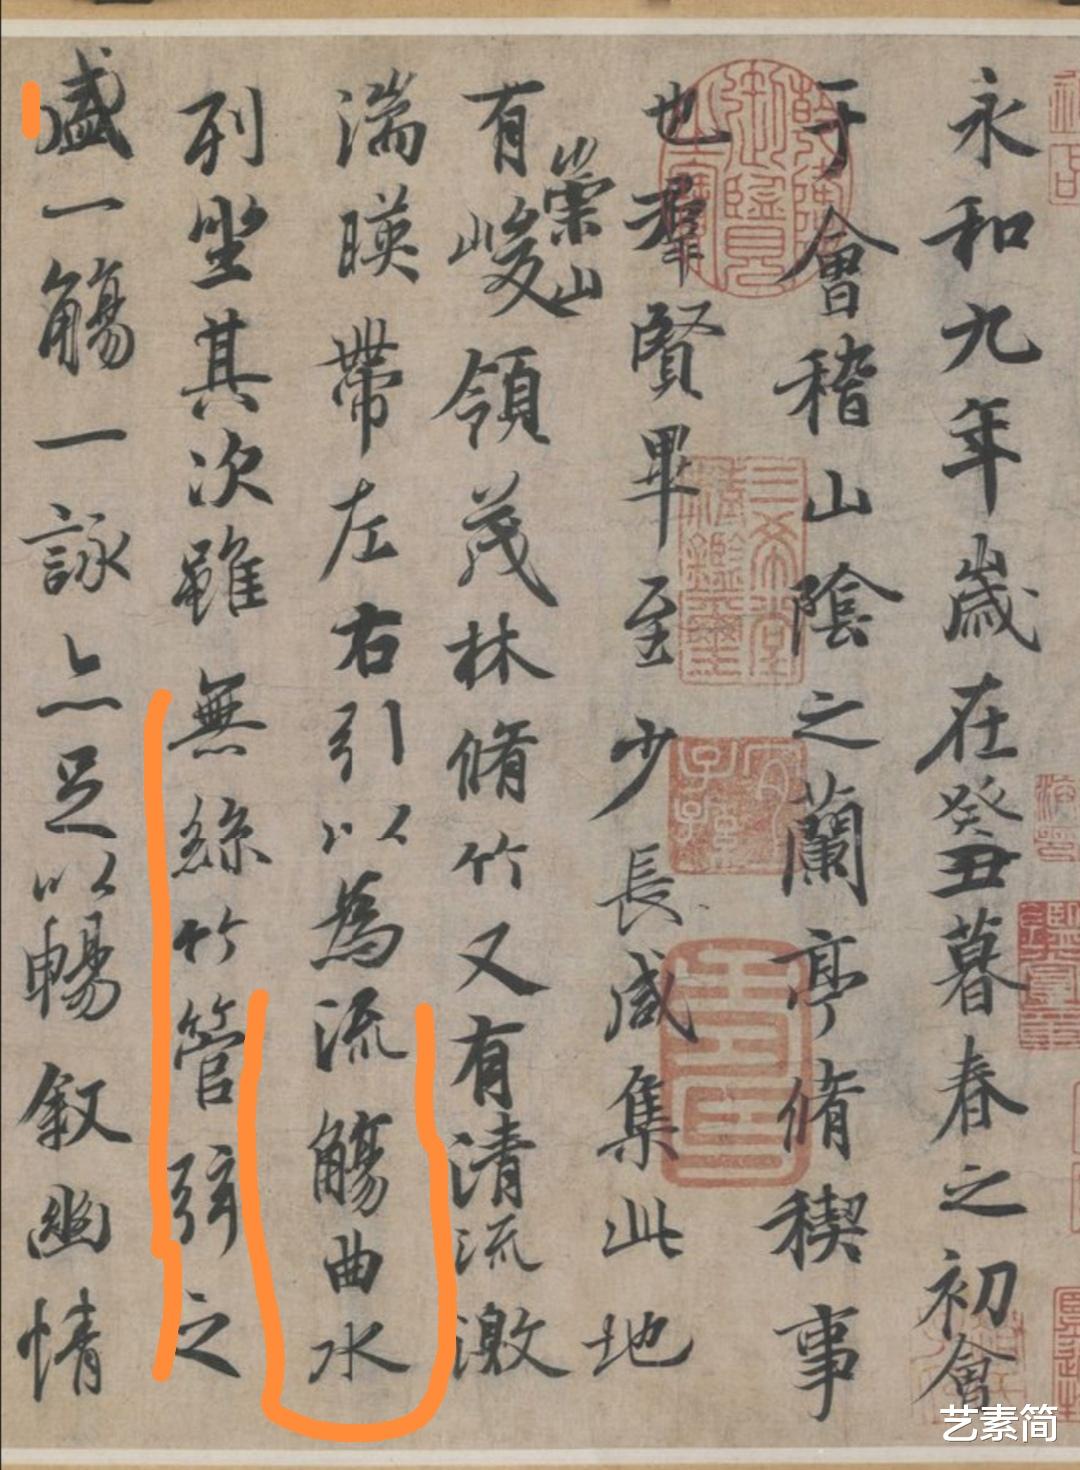 永和九年歲在癸丑暮春之初會
于會稽山陰之蘭亭脩稧事
也羣賢畢至少長咸集此地
有崇山峻領茂林脩竹又有清流激
湍暎帶左右引以為流觴曲水
列坐其次雖無絲竹管弦之
盛一觴一詠亦足以暢敘幽情
三希堂精鑑璽
宜子孫
艺素简